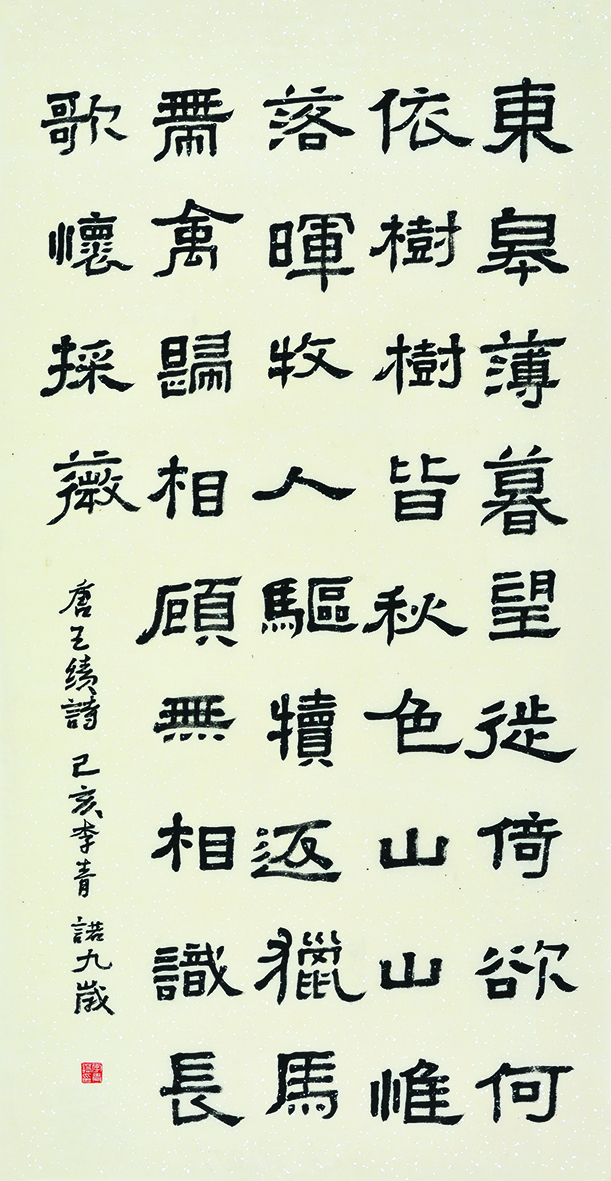 東皋薄暮望徙倚欲何
依樹樹皆秋色山山惟
落暉牧人驅犢返獵馬
帶禽歸相顧無相識長
歌懷採薇
唐王績詩 己亥李青諾九歲